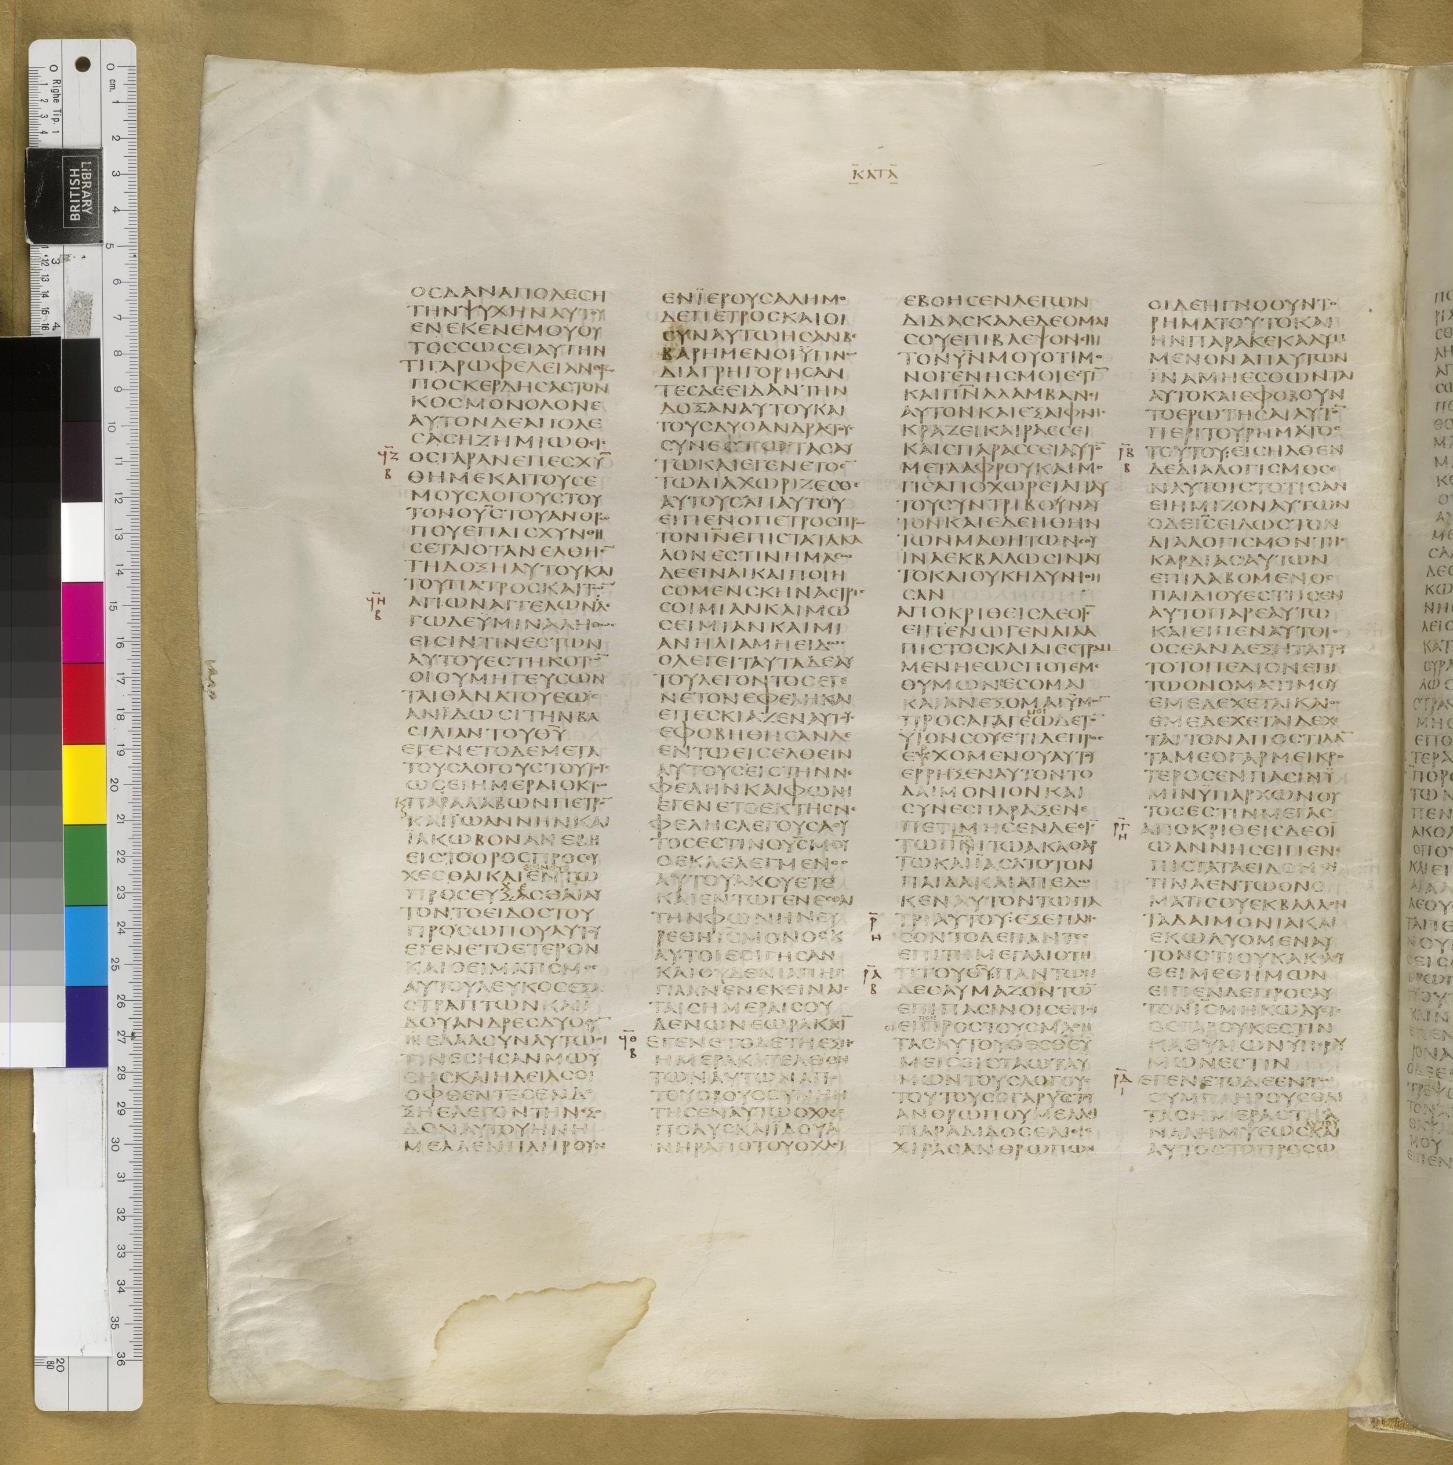 ΚΑΤΑ
ΟϹΔΑΝΑΠΟΛΕϹΗ
ΤΗΝΨΥΧΗΝΑΥΤΟΥ
ΕΝΕΚΕΝΕΜΟΥΟΥ
ΤΟϹϹΩϹΕΙΑΥΤΗΝ
ΤΙΓΑΡΩΦΕΛΕΙΑΝΘΡΩ
ΠΟϹΚΕΡΔΗϹΑϹΤΟΝ
ΚΟϹΜΟΝΟΛΟΝΕ
ΑΥΤΟΝΔΕΑΠΟΛΕ
ϹΑϹΗΖΗΜΙΩΘΙϹ
ΟϹΓΑΡΑΝΕΠΕϹΧΥ
ΘΗΜΕΚΑΙΤΟΥϹΕ
ΜΟΥϹΛΟΓΟΥϹΤΟΥ
ΤΟΝΟΥϹΤΟΥΑΝΘΡΩ
ΠΟΥΕΠΑΙϹΧΥΝΘΗ
ϹΕΤΑΙΟΤΑΝΕΛΘΗΕ̅
ΤΗΔΟΞΗΑΥΤΟΥΚΑΙ
ΤΟΥΠΑΤΡΟϹΚΑΙΤΩ̅
ΑΓΙΩΝΑΓΓΕΛΩΝ
ΓΩΔΕΥΜΙΝΑΛΗΘΩϹ
ΕΙϹΙΝΤΙΝΕϹΤΩΝ
ΑΥΤΟΥΕϹΤΗΚΟΤΩ̅
ΟΙΟΥΜΗΓΕΥϹΩΝ
ΤΑΙΘΑΝΑΤΟΥΕΩϹ
ΑΝΙΔΩϹΙΤΗΝΒΑ
ϹΙΛΙΑΝΤΟΥΘΥ̅
ΕΓΕΝΕΤΟΔΕΜΕΤΑ
ΤΟΥϹΛΟΓΟΥϹΤΟΥΤΟΥϹ
ΩϹΕΙΗΜΕΡΑΙΟΚΤΩ
ΠΑΡΑΛΑΒΩΝΠΕΤΡΟ̅
ΚΑΙΪΩΑΝΝΗΝΚΑΙ
ΪΑΚΩΒΟΝΑΝΕΒΗ
ΕΙϹΤΟΟΡΟϹΠΡΟϹΕΥ
ΧΕϹΘΑΙΚΑΙΕΝΤΩ
ΠΡΟϹΕΥΞΑϹΘΑΙΑΥ
ΤΟΝΤΟΕΙΔΟϹΤΟΥ
ΠΡΟϹΩΠΟΥΑΥΤΟΥ
ΕΓΕΝΕΤΟΕΤΕΡΟΝ
ΚΑΙΟΕΙΜΑΤΙϹΜΟϹ
ΑΥΤΟΥΛΕΥΚΟϹΕΞΑ
ϹΤΡΑΠΤΩΝΚΑΙΙ
ΔΟΥΑΝΔΡΕϹΔΥΟϹΥ̅
ΕΛΑΛΟΥΝΑΥΤΩΟΙ
ΤΙΝΕϹΗϹΑΝΜΩΥ
ϹΗϹΚΑΙΗΛΕΙΑϹΟΙ
ΟΦΘΕΝΤΕϹΕΝΔΟ
ΞΗΕΛΕΓΟΝΤΗΝΕΞΟ
ΔΟΝΑΥΤΟΥΗΝΗ
ΜΕΛΛΕΝΠΛΗΡΟΥΝ
ΕΝΪΕΡΟΥϹΑΛΗΜΟ
ΔΕΠΕΤΡΟϹΚΑΙΟΙ
ϹΥΝΑΥΤΩΗϹΑΝΒΕ
ΒΑΡΗΜΕΝΟΙΥΠΝΩ
ΔΙΑΓΡΗΓΟΡΗϹΑΝ
ΤΕϹΔΕΕΙΔΑΝΤΗΝ
ΔΟΞΑΝΑΥΤΟΥΚΑΙ
ΤΟΥϹΔΥΟΑΝΔΡΑϹΤΟΥϹ
ϹΥΝΕϹΤΩΤΑϹΑΥ
ΤΩΚΑΙΕΓΕΝΕΤΟΕ̅
ΤΩΔΙΑΧΩΡΙΖΕϹΘΑΙ
ΑΥΤΟΥϹΑΠΑΥΤΟΥ
ΕΙΠΕΝΟΠΕΤΡΟϹΠΡΟϹ
ΤΟΝΙ̅Ν̅ΕΠΙϹΤΑΤΑΚΑ
ΛΟΝΕϹΤΙΝΗΜΑϹΩ
ΔΕΕΙΝΑΙΚΑΙΠΟΙΗ
ϹΟΜΕΝϹΚΗΝΑϹΤΡΙϹ
ϹΟΙΜΙΑΝΚΑΙΜΩ
ϹΕΙΜΙΑΝΚΑΙΜΙ
ΑΝΗΛΙΑΜΗΕΙΔΩϹ
ΟΛΕΓΕΙΤΑΥΤΑΔΕΑΥ
ΤΟΥΛΕΓΟΝΤΟϹΕΓΕ
ΝΕΤΟΝΕΦΕΛΗΚΑΙ
ΕΠΕϹΚΙΑΖΕΝΑΥΤΟΥϹ
ΕΦΟΒΗΘΗϹΑΝΔΕ
ΕΝΤΩΕΙϹΕΛΘΕΙΝ
ΑΥΤΟΥϹΕΙϹΤΗΝΝΕ
ΦΕΛΗΝΚΑΙΦΩΝΗ
ΕΓΕΝΕΤΟΕΚΤΗϹΝΕ
ΦΕΛΗϹΛΕΓΟΥϹΑΟΥ
ΤΟϹΕϹΤΙΝΟΥϹΜΟΥ
ΟΕΚΛΕΛΕΓΜΕΝΟϹ
ΑΥΤΟΥΑΚΟΥΕΤΕ
ΚΑΙΕΝΤΩΓΕΝΕϹΘΑΙ
ΤΗΝΦΩΝΗΝΕΥ
ΡΕΘΗΙϹΜΟΝΟϹΚ
ΑΥΤΟΙΕϹΙΓΗϹΑΝ
ΚΑΙΟΥΔΕΝΙΑΠΗΓ
ΓΙΛΑΝΕΝΕΚΕΙΝΑΙϹ
ΤΑΙϹΗΜΕΡΑΙϹΟΥ
ΔΕΝΩΝΕΩΡΑΚΑ̅
ΕΓΕΝΕΤΟΔΕΤΗΕΞΗϹ
ΗΜΕΡΑΚΑΤΕΛΘΟΝ
ΤΩΝΑΥΤΩΝΑΠΟ
ΤΟΥΟΡΟΥϹϹΥΝΗΝ
ΤΗϹΕΝΑΥΤΩΟΧΛΟϹ
ΠΟΛΥϹΚΑΙΪΔΟΥΑ
ΝΗΡΑΠΟΤΟΥΟΧΛΟΥ
ΕΒΟΗϹΕΝΛΕΓΩΝ
ΔΙΔΑϹΚΑΛΕΔΕΟΜΑΙ
ϹΟΥΕΠΙΒΛΕΨΟΝΕΠΙ
ΤΟΝΥ̅Ν̅ΜΟΥΟΤΙΜΟ
ΝΟΓΕΝΗϹΜΟΙΕϹΤΙ̅
ΚΑΙΠ̅Ν̅Α̅ΛΑΜΒΑΝΕΙ
ΑΥΤΟΝΚΑΙΕΞΑΙΦΝΗϹ
ΚΡΑΖΕΙΚΑΙΡΑϹϹΕΙ
ΚΑΙϹΠΑΡΑϹϹΕΙΑΥΤΟ̅
ΜΕΤΑΑΦΡΟΥΚΑΙΜΟ
ΓΙϹΑΠΟΧΩΡΕΙΑΠΑΥ
ΤΟΥϹΥΝΤΡΙΒΟΝΑΥ
ΤΟΝΚΑΙΕΔΕΗΘΗΝ
ΤΩΝΜΑΘΗΤΩΝϹΟΥ
ΙΝΑΕΚΒΑΛΩϹΙΝΑΥ
ΤΟΚΑΙΟΥΚΗΔΥΝΗΘΗ
ϹΑΝ
ΑΠΟΚΡΙΘΕΙϹΔΕΟΙ̅Ϲ̅
ΕΙΠΕΝΩΓΕΝΑΙΑ
ΠΙϹΤΟϹΚΑΙΔΙΕϹΤΡΑΜ
ΜΕΝΗΕΩϹΠΟΤΕΜΕ
ΘΥΜΩΝΕϹΟΜΑΙ
ΚΑΙΑΝΕΞΟΜΑΙΫΜΩ̅
ΠΡΟϹΑΓΑΓΕΩΔΕΤΟ̅
ΥΙΟΝϹΟΥΕΤΙΔΕΠΡΟϹ
ΕΡΧΟΜΕΝΟΥΑΥΤΟΥ
ΕΡΡΗΞΕΝΑΥΤΟΝΤΟ
ΔΑΙΜΟΝΙΟΝΚΑΙ
ϹΥΝΕϹΠΑΡΑΞΕΝΕ
ΠΕΤΙΜΗϹΕΝΔΕΟΙ̅Ϲ̅
ΤΩΠ̅Ν̅Ι̅ΤΩΑΚΑΘΑΡ
ΤΩΚΑΙΪΑϹΑΤΟΤΟΝ
ΠΑΙΔΑΚΑΙΑΠΕΔΩ
ΚΕΝΑΥΤΟΝΤΩΠΑ
ΤΡΙΑΥΤΟΥΕΞΕΠΛΗϹ
ϹΟΝΤΟΔΕΠΑΝΤΕϹ
ΕΠΙΤΗΜΕΓΑΛΙΟΤΗ
ΤΙΤΟΥΘ̅Υ̅ΠΑΝΤΩΝ
ΔΕΘΑΥΜΑΖΟΝΤΩ̅
ΕΠΙΠΑϹΙΝΟΙϹΕΠΟΙ
ΕΙΠΡΟϹΤΟΥϹΜΑΘΗ
ΤΑϹΑΥΤΟΥΘΕϹΘΕΥ
ΜΕΙϹΕΙϹΤΑΩΤΑΥ
ΜΩΝΤΟΥϹΛΟΓΟΥϹ
ΤΟΥΤΟΥϹΟΓΑΡΥϹΤΟΥ
ΑΝΘΡΩΠΟΥΜΕΛΛΙ
ΠΑΡΑΔΙΔΟϹΘΑΙΕΙϹ
ΧΙΡΑϹΑΝΘΡΩΠΩΝ
ΟΙΔΕΗΓΝΟΟΥΝΤΟ
ΡΗΜΑΤΟΥΤΟΚΑΙ
ΗΝΠΑΡΑΚΕΚΑΛΥΜ
ΜΕΝΟΝΑΠΑΥΤΩΝ
ΙΝΑΜΗΕϹΘΩΝΤΑΙ
ΑΥΤΟΚΑΙΕΦΟΒΟΥΝ
ΤΟΕΡΩΤΗϹΑΙΑΥΤΟ̅
ΠΕΡΙΤΟΥΡΗΜΑΤΟϹ
ΤΟΥΤΟΥΕΙϹΗΛΘΕΝ
ΔΕΔΙΑΛΟΓΙϹΜΟϹΕ
ΝΑΥΤΟΙϹΤΟΤΙϹΑΝ
ΕΙΗΜΙΖΩΝΑΥΤΩΝ
ΟΔΕΙ̅Ϲ̅ΕΙΔΩϹΤΟΝ
ΔΙΑΛΟΓΙϹΜΟΝΤΗϹ
ΚΑΡΔΙΑϹΑΥΤΩΝ
ΕΠΙΛΑΒΟΜΕΝΟϹ
ΠΑΙΔΙΟΥΕϹΤΗϹΕΝ
ΑΥΤΟΠΑΡΕΑΥΤΩ
ΚΑΙΕΙΠΕΝΑΥΤΟΙϹ
ΟϹΕΑΝΔΕΞΗΤΑΙΤΟΥ
ΤΟΤΟΠΕΔΙΟΝΕΠΙ
ΤΩΟΝΟΜΑΤΙΜΟΥ
ΕΜΕΔΕΧΕΤΑΙΚΑΙΟϹ
ΕΜΕΔΕΧΕΤΑΙΔΕΧΕ
ΤΑΙΤΟΝΑΠΟϹΤΙΛΑ̅
ΤΑΜΕΟΓΑΡΜΕΙΚΡΟ
ΤΕΡΟϹΕΝΠΑϹΙΝΥ
ΜΙΝΫΠΑΡΧΩΝΟΥ
ΤΟϹΕϹΤΙΝΜΕΓΑϹ
ΑΠΟΚΡΙΘΕΙϹΔΕΟΪ
ΩΑΝΝΗϹΕΙΠΕΝΕ
ΠΙϹΤΑΤΑΕΙΔΟΜΕ̅
ΤΙΝΑΕΝΤΩΟΝΟ
ΜΑΤΙϹΟΥΕΚΒΑΛΛΟΝ
ΤΑΔΑΙΜΟΝΙΑΚΑΙ
ΕΚΩΛΥΟΜΕΝΑΥ
ΤΟΝΟΤΙΟΥΚΑΚΟΛΟΥ
ΘΕΙΜΕΘΗΜΩΝ
ΕΙΠΕΝΔΕΠΡΟϹΑΥ
ΤΟΝΙ̅Ϲ̅ΜΗΚΩΛΥΕΤΕ
ΟϹΓΑΡΟΥΚΕϹΤΙΝ
ΚΑΘΥΜΩΝΥΠΕΡΥ
ΜΩΝΕϹΤΙΝ
ΕΓΕΝΕΤΟΔΕΕΝΤΩ
ϹΥΜΠΛΗΡΟΥϹΘΑΙ
ΤΑϹΗΜΕΡΑϹΤΗϹΑ
ΝΑΛΗΜΨΕΩϹΚΑΙ
ΑΥΤΟϹΤΟΠΡΟϹΩ